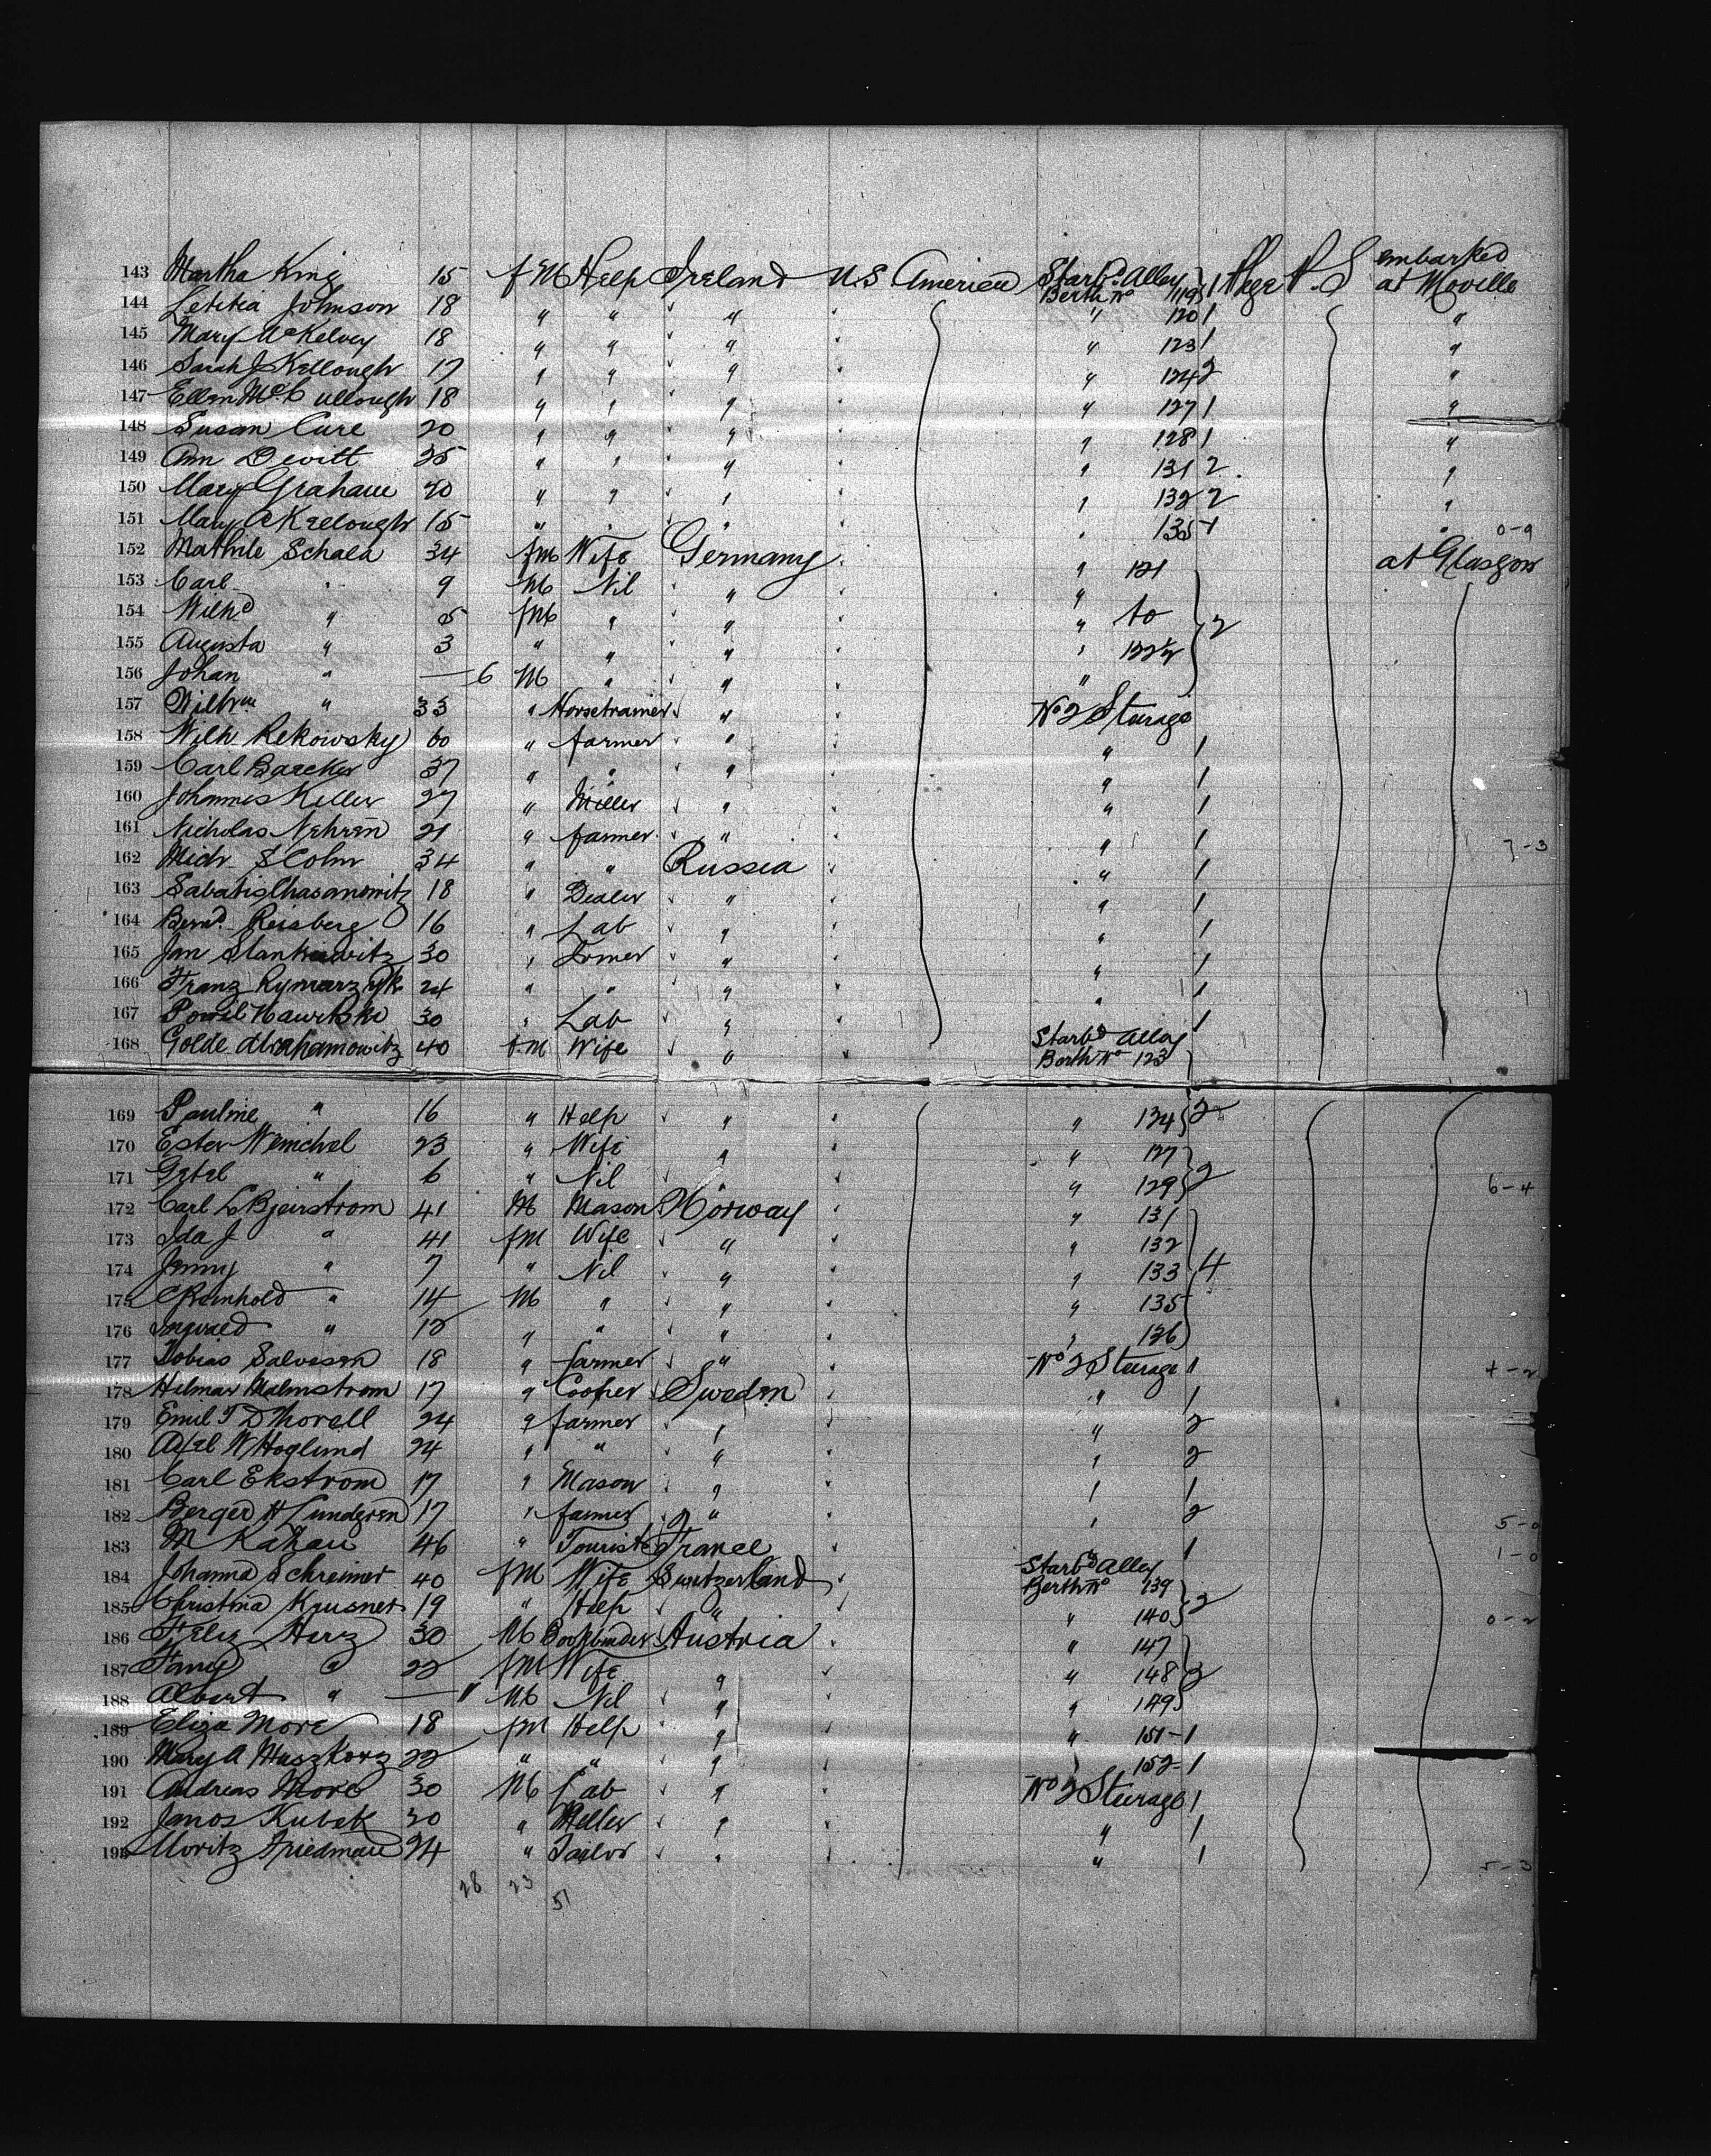 143 Martha King 15 fM Help Ireland U.S America Starbd. Alley Berth No 119 1 P.S embarked at Moville
144 Letitia Johnson 18 " " " " 120 1 "
145 Mary McKelvey 18 " " " " 123 1 "
146 Sarah J Kellough 17 " " " " 124 2 "
147 Ellen McCullough 18 " " " " 127 1 "
148 Susan Cure 20 " " " " 128 1 "
149 Ann Devitt 35 " " " " 131 2 "
150 Mary Graham 20 " " " " 132 2 "
151 Mary A Kellough 15 " " " " 135 1 " 0-9
152 Mathile Schala 34 fM Wife Germany " 121 at Glasgow
153 Carl " 9 M Nil " "
154 Wilhd " 5 fM " " " to
155 Augusta " 3 " " " " 122½ 2
156 Johan " — 6 M " " "
157 Wilhm " 33 " Horsetrainer " No 2 Steerage
158 Wilh Rekowsky 60 " farmer " " 1
159 Carl Baecker 37 " " " " 1
160 Johannes Keller 27 " Miller " " 1
161 Nicholas Nehren 21 " farmer " " 1 7-3
162 34 " " Russia " 1
163 Sabatis Chasanowitz 18 " Dealer " " 1
164 Bernd. Reisberg 16 " Lab " " 1
165 Jan Stankiewitz 30 " " " 1
166 Franz 24 " " " " 1
167 30 " Lab " 1
168 Golde Abrahamowitz 40 f.M Wife " Starbd Alley Berth No 123
169 Pauline " 16 " Help " " 124 2
170 Ester Wemchel 23 " Wife " " 127
171 Getel " 6 " Nil " " 129 2 6-4
172 Carl L Bjeirstrom 41 M Mason Norway " 131
173 Ida J " 41 fM Wife " " 132
174 Jenny " 7 " Nil " " 133 4
175 Reinhold " 14 M " " " 135
176 Ingvald " 12 " " " " 136
177 Tobias Salvesen 18 " farmer " No 2 Steerage 1 4-2
178 Hilmar Malmstrom 17 " Cooper Sweden " 1
179 Emil T D Thorell 24 " farmer " " 2
180 Axel W Hoglund 24 " " " " 2
181 Carl Ekstrom 17 " Mason " " 1
182 Berged H Lundgren 17 " farmer " " 2 5-0
183 M Kahan 46 " Tourist France " 1 1-0
184 Johanna Schreiner 40 fM Wife Switzerland Starbd Alley Berth No 139
185 Christina Krusner 19 " Help " " 140 2 0-2
186 Felix Herz 30 M Bookbinder Austria " 147
187 Fany " 22 fM Wife " " 148 2
188 Albert " — 11 M Nil " " 149
189 Eliza More 18 fM Help " " 151-1
190 Mary A Muszkorz 22 " " " " 152-1
191 Andreas More 30 M Lab " No 2 Steerage 1
192 Janos Kubek 30 " " " 1
193 Moritz Friedman 24 " Tailor " " 1 5-3
28 23
51